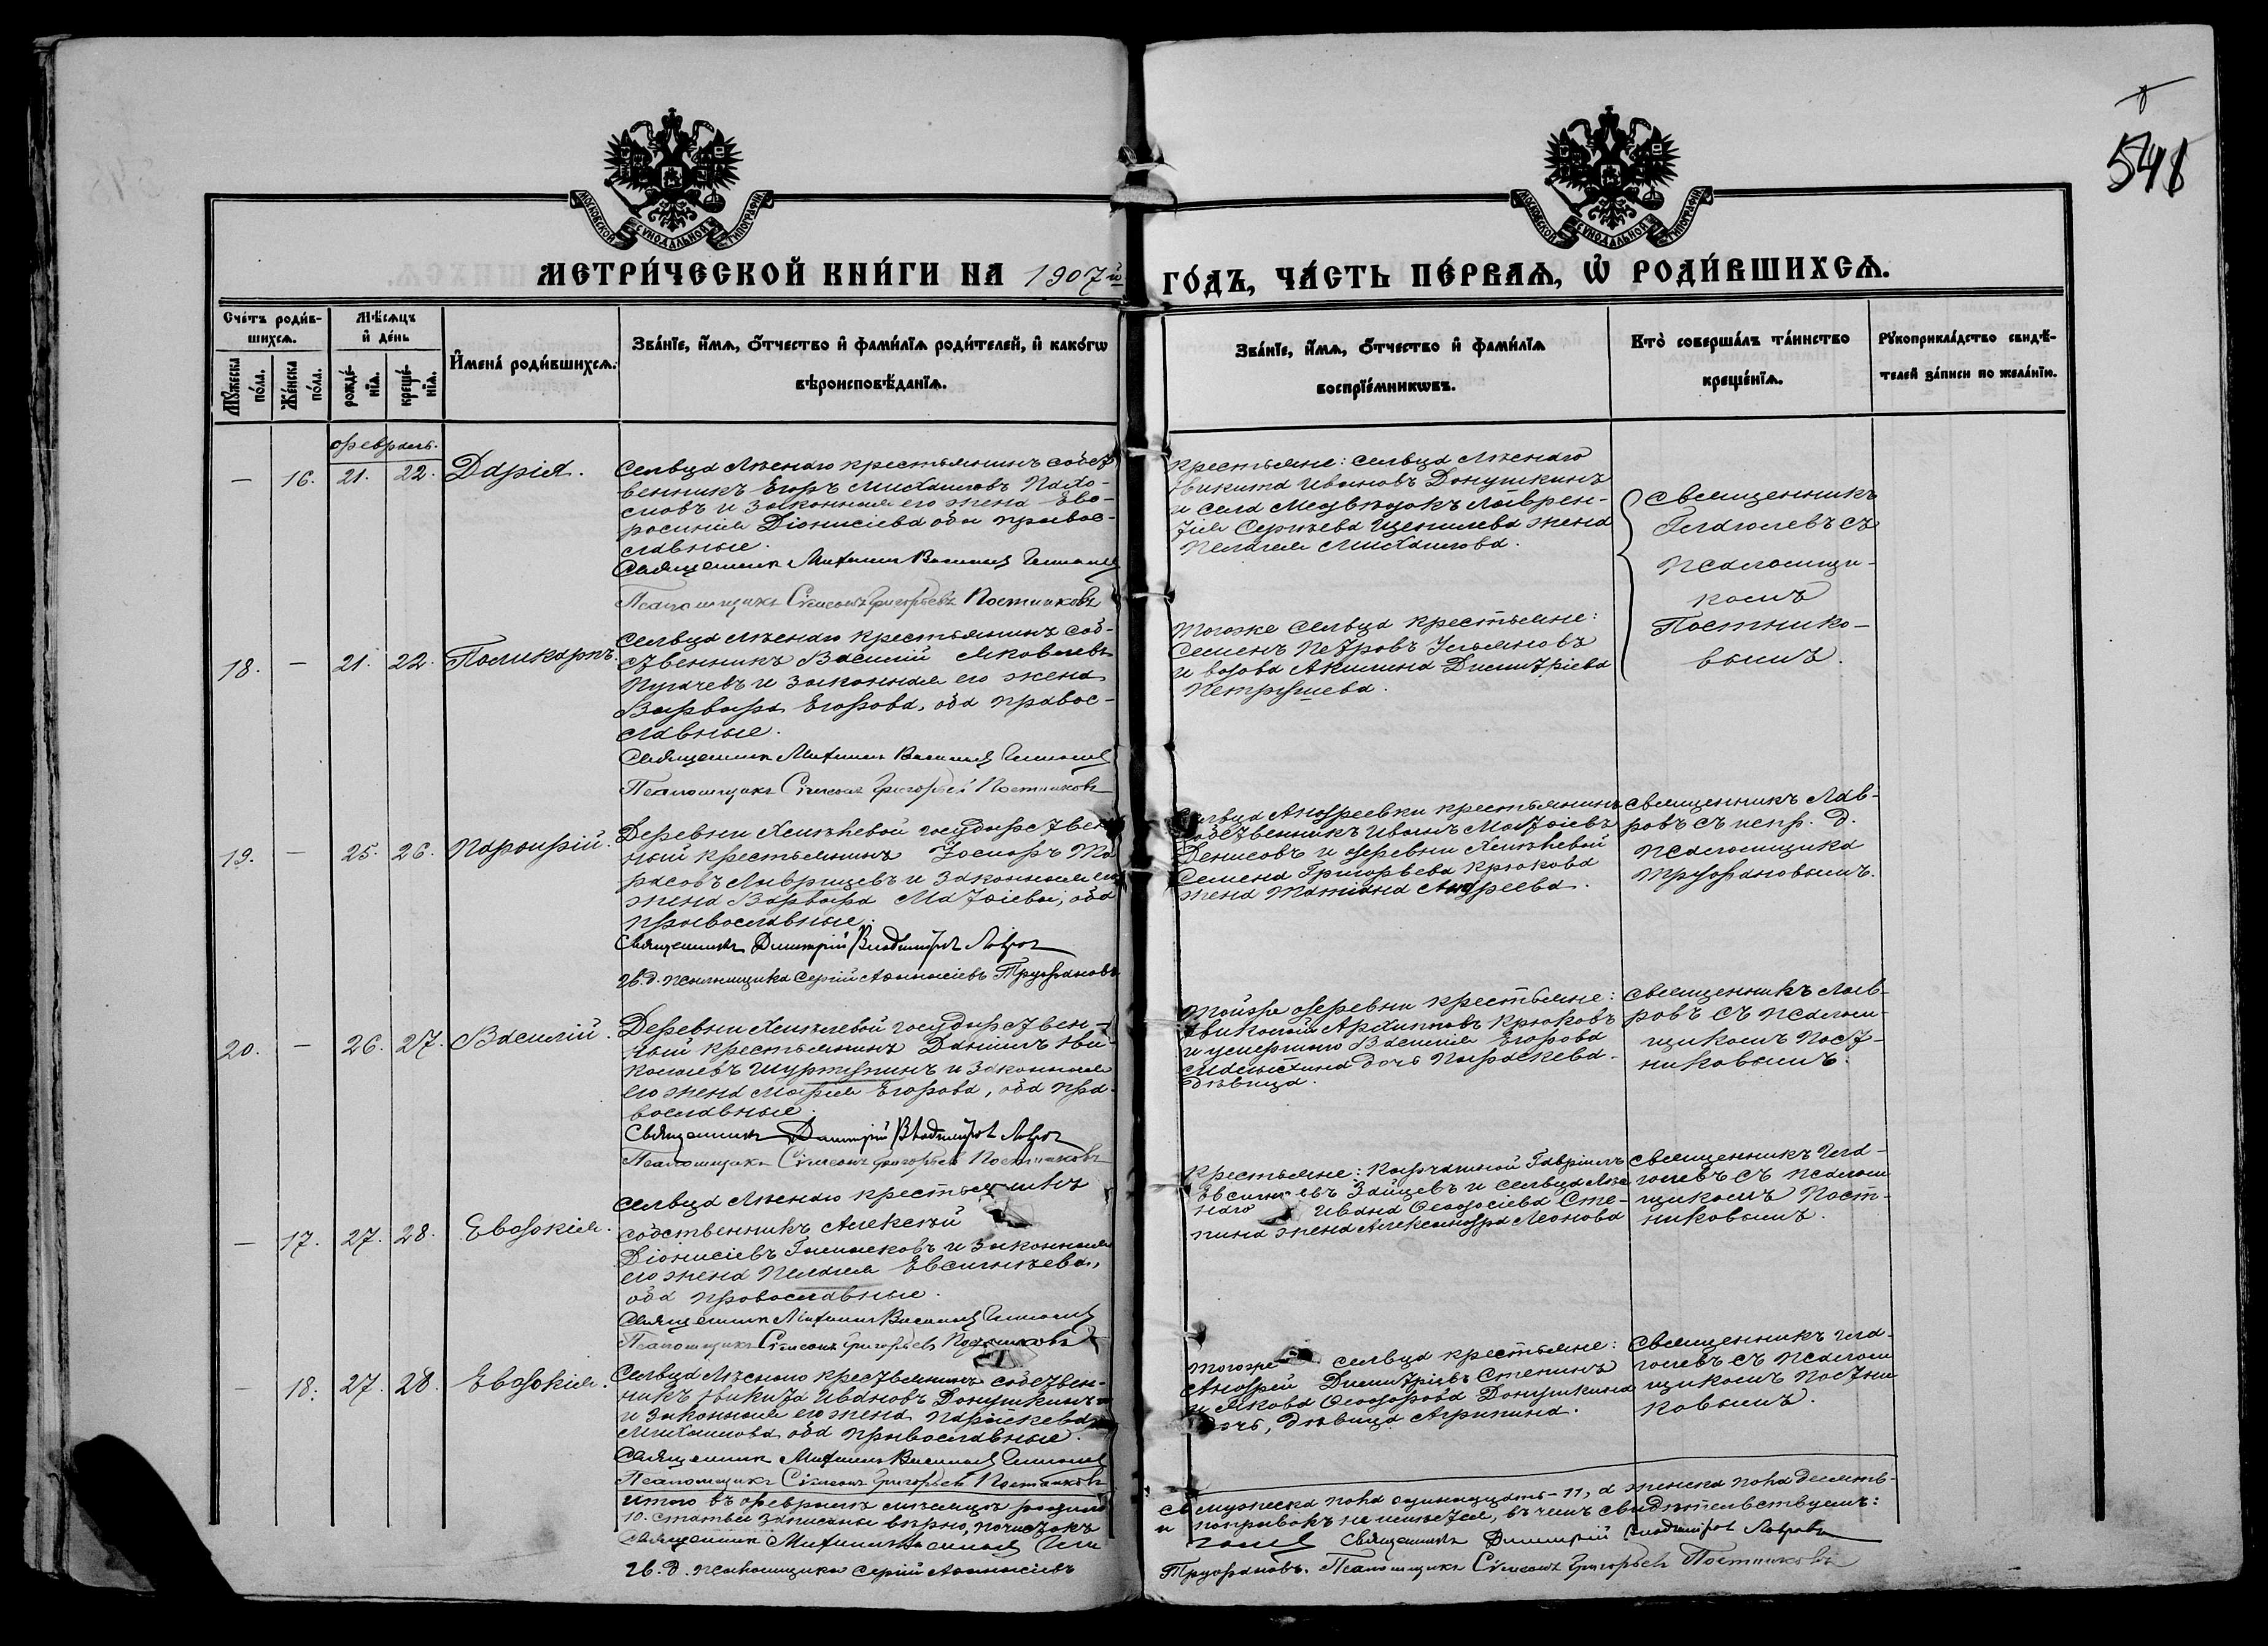 548
МОСКОВСКОЙ СѴНОДАЛЬНОЙ ТИПОГРАФІИ
МОСКОВСКОЙ СѴНОДАЛЬНОЙ ТИПОГРАФІИ
МЕТРИ́ЧЕСКОЙ КНИ́ГИ НА 1907й ГО́ДЪ, ЧА́СТЬ ПЕ́РВАѦ, Ѡ РОДИ́ВШИХСѦ.
Сче́тъ роди́в-
шихсѧ.
Мꙋ́жеска по́ла.
Же́нска по́ла.
Мѣ́сѧцъ
и҆ де́нь
рожде́-
нїѧ.
креще́-
нїѧ.
И҆мена̀ роди́вшихсѧ.
Зва́нїе, и҆́мѧ, о҆́тчество и҆ фами́лїѧ роди́телей, и҆ како́гѡ
вѣроисповѣ́данїѧ.
Зва́нїе, и҆́мѧ, о҆́тчество и҆ фами́лїѧ
воспрїе́мникѡвъ.
Кто̀ соверша́лъ та́инство
креще́нїѧ.
Рꙋкоприкла́дство свидѣ́-
телей за́писи по жела́нїю.
февраль.
— 16. 21. 22. Дарія.
Сельца Лѣснаго крестьянинъ собст
венникъ Егоръ Михаиловъ
и законная его жена Евф-
росинія Діонисіева оба правос-
лавные.
Священникъ Василіевъ
Псаломщикъ Сімеонъ Григорьевъ Постниковъ
Крестьяне: сельца Лѣснаго
Никита Ивановъ Донушкинъ
и села Медвѣдокъ Лаврен-
тія Сергѣева жена
Пелагея Михаилова.
Священникъ
Глаголевъ съ
псаломщи-
комъ
Постнико-
вымъ.
18. — 21. 22. Поликарпъ.
Сельца Лѣснаго крестьянинъ соб-
ственникъ Василій Яковлевъ
Пугачевъ и законная его жена
Варвара Егорова, оба правос-
лавные.
Священникъ Василіевъ
Псаломщикъ Сімеонъ Григорьевъ Постниковъ
Тогоже сельца крестьяне:
Семенъ Петровъ Ульяновъ
и вдова Акилина Димитріева
Петрушева.
19. — 25. 26. Порфирій.
Деревни государствен
ный крестьянинъ Іосифъ Та
расовъ и законная его
жена Варвара Матѳіева, оба
православные.
Священникъ Димитрій Владиміровъ Лавровъ
И. д. псаломщика Сергій Аѳанасіевъ Труфановъ
Сельца Андреевки крестьянинъ
собственникъ Иванъ Матѳіевъ
Денисовъ и деревни
Семена Григорьева Крюкова
жена Татіана Андреева.
Священникъ Лав-
ровъ съ испр. д.
псаломщика
Труфановымъ.
20. — 26. 27. Василій.
Деревни государствен-
ный крестьянинъ Даніилъ Ни-
колаевъ Шуртупинъ и законная
его жена Марія Егорова, оба пра-
вославные.
Священникъ Димитрій Владиміровъ Лавровъ
Псаломщикъ Сімеонъ Григорьевъ Постниковъ
Тойже деревни крестьяне:
Николай Архиповъ Крюковъ
и умершаго Василія Егорова
дочь Параскева
дѣвица.
Священникъ Лав-
ровъ съ псалом-
щикомъ Пост-
никовымъ.
— 17. 27. 28. Евдокія.
Сельца Лѣснаго крестьянинъ
собственникъ Алексѣй
Діонисіевъ и законная
его жена Пелагея Евсигнѣева,
оба православные.
Священникъ Василіевъ
Псаломщикъ Сімеонъ Григорьевъ Постниковъ
Крестьяне: Гавріилъ
Зайцевъ и сельца Лѣс
наго Ивана Ѳеодосіева Сте-
пина жена Александра Леонова
Священникъ Гла-
голевъ съ псалом
щикомъ Пост-
никовымъ.
— 18. 27. 28. Евдокія.
Сельца Лѣснаго крестьянинъ собствен-
никъ Никита Ивановъ Донушкинъ
и законная его жена Параскева
Михаилова оба православные.
Священникъ Василіевъ
Псаломщикъ Сімеонъ Григорьевъ Постниковъ
Тогоже сельца крестьяне:
Андрей Димитріевъ Степинъ
и Якова Ѳеодорова Донушкина
дочь, дѣвица Агрипина.
Священникъ Гла-
голевъ съ псалом
щикомъ Постни
ковымъ.
Итого въ февралѣ мѣсяцѣ родило
сь мужеска пола одиннадцать-11, а женска пола десять-
10. Статьи записаны вѣрно, почистокъ
и поправокъ не имѣется, въ чемъ свидѣтельствуемъ:
Священникъ
Священникъ Димитрій Владиміровъ Лавровъ
И. д. псаломщика Сергій Аѳанасіевъ
Труфановъ. Псаломщикъ Сімеонъ Григорьевъ Постниковъ